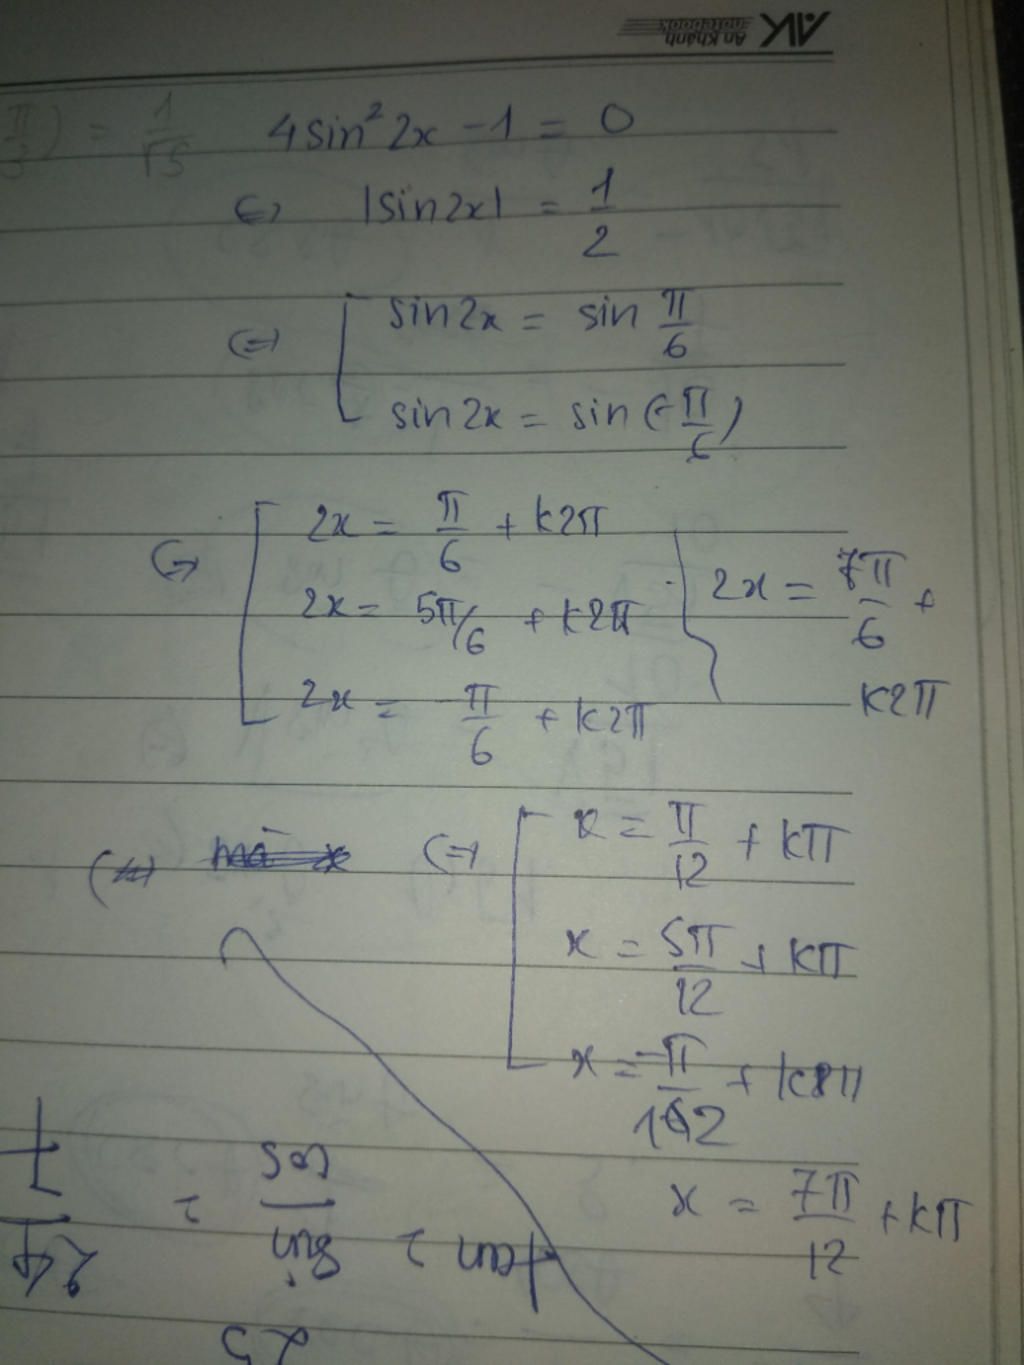 AK
An Khánh
notebook
π/3) = 1/√5
4sin²2x - 1 = 0
⇔ |sin2x| = 1/2
⇔ [ sin2x = sin π/6
sin2x = sin(-π/6)
⇔ [ 2x = π/6 + k2π
2x = 5π/6 + k2π
2x = -π/6 + k2π
2x = 7π/6 +
k2π
⇔ [ x = π/12 + kπ
x = 5π/12 + kπ
x = -π/12 + kπ
x = 7π/12 + kπ
tan = sin/cos =